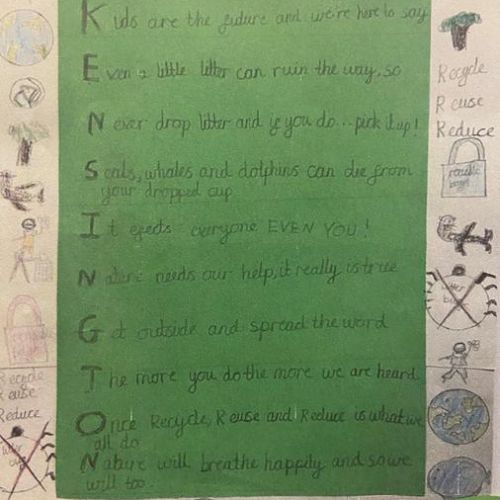 Kids are the future and we're here to say
Even a little litter can ruin the way, so
Never drop litter and if you do... pick it up!
Seals, whales and dolphins can die from
your dropped cup
It effects everyone EVEN YOU!
Nature needs our help, it really is true
Get outside and spread the word
The more you do the more we are heard
Once Recycle, Reuse and Reduce is what we
all do
Nature will breathe happily and so we
will too.
Recycle
Reuse
Reduce
Recycle
Reuse
Reduce